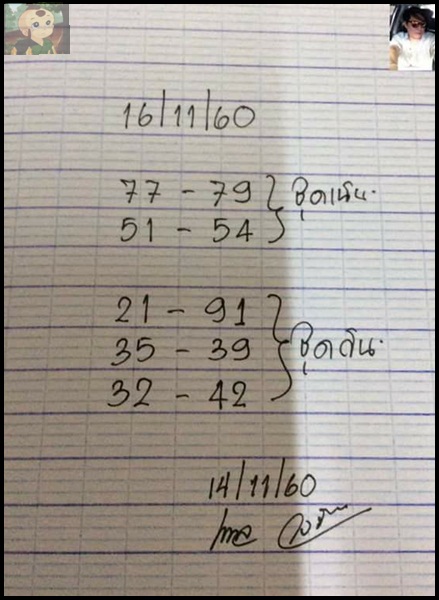 16/11/60
77 - 79
51 - 54
ชุดเน้น
21 - 91
35 - 39
32 - 42
ชุดดัน
14/11/60